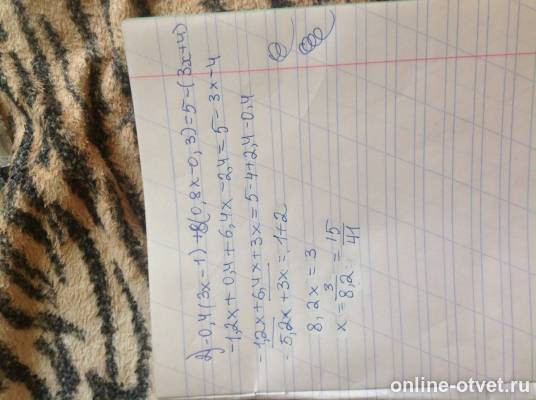 2) -0,4(3x-1)+8(0,8x-0,3)=5-(3x+4)
-1,2x+0,4+6,4x-2,4=5-3x-4
-1,2x+6,4x+3x=5-4+2,4-0,4
-5,2x+3x=1+2
8,2x=3
x=3/8,2=15/41
online-otvet.ru